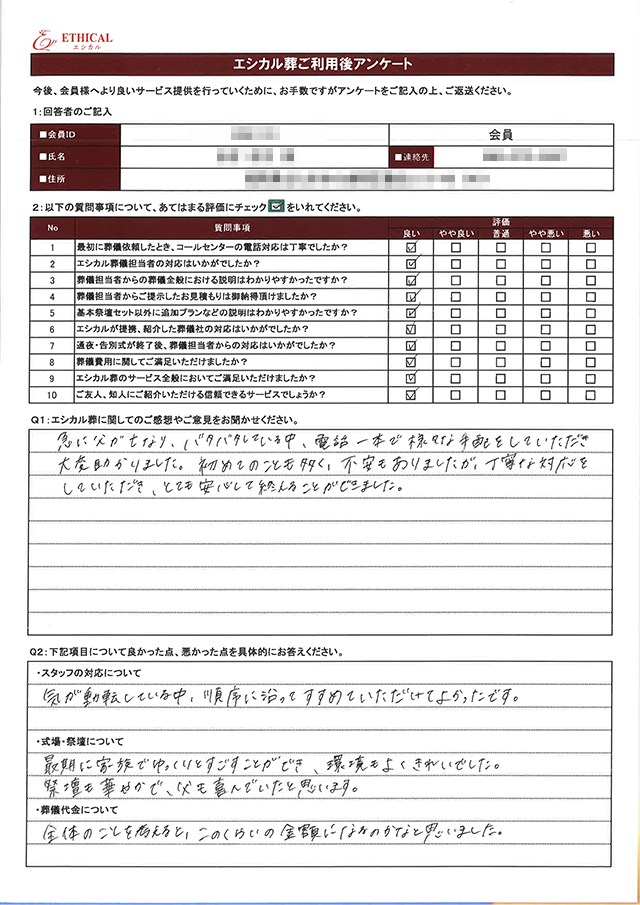 ETHICAL
エシカル
エシカル葬ご利用後アンケート
今後、会員様へより良いサービス提供を行っていくために、お手数ですがアンケートをご記入の上、ご返送ください。
1：回答者のご記入
■会員ID 会員
■氏名 ■連絡先
■住所
2：以下の質問事項について、あてはまる評価にチェック☑をいれてください。
No 質問事項 評価
良い やや良い 普通 やや悪い 悪い
1 最初に葬儀依頼したとき、コールセンターの電話対応は丁寧でしたか？ ☑ □ □ □ □
2 エシカル葬儀担当者の対応はいかがでしたか？ ☑ □ □ □ □
3 葬儀担当者からの葬儀全般における説明はわかりやすかったですか？ ☑ □ □ □ □
4 葬儀担当者からご提示したお見積もりは御納得頂けましたか？ ☑ □ □ □ □
5 基本祭壇セット以外に追加プランなどの説明はわかりやすかったですか？ ☑ □ □ □ □
6 エシカルが提携、紹介した葬儀社の対応はいかがでしたか？ ☑ □ □ □ □
7 通夜・告別式が終了後、葬儀担当者からの対応はいかがでしたか？ ☑ □ □ □ □
8 葬儀費用に関してご満足いただけましたか？ ☑ □ □ □ □
9 エシカル葬のサービス全般においてご満足いただけましたか？ ☑ □ □ □ □
10 ご友人、知人にご紹介いただける信頼できるサービスでしょうか？ ☑ □ □ □ □
Q1：エシカル葬に関してのご感想やご意見をお聞かせください。
急に父が亡なり、バタバタしている中、電話一本で様々な手配をしていただき
大変助かりました。初めてのことも多く、不安もありましたが、丁寧な対応を
していただき、とても安心して終えることができました。
Q2：下記項目について良かった点、悪かった点を具体的にお答えください。
・スタッフの対応について
気が動転している中、順序に沿ってすすめていただけてよかったです。
・式場・祭壇について
最期に家族でゆっくりとすごすことができ、環境もよくきれいでした。
祭壇も華やかで、父も喜んでいたと思います。
・葬儀代金について
全体のことを考えると、このくらいの金額になるのかなと思いました。